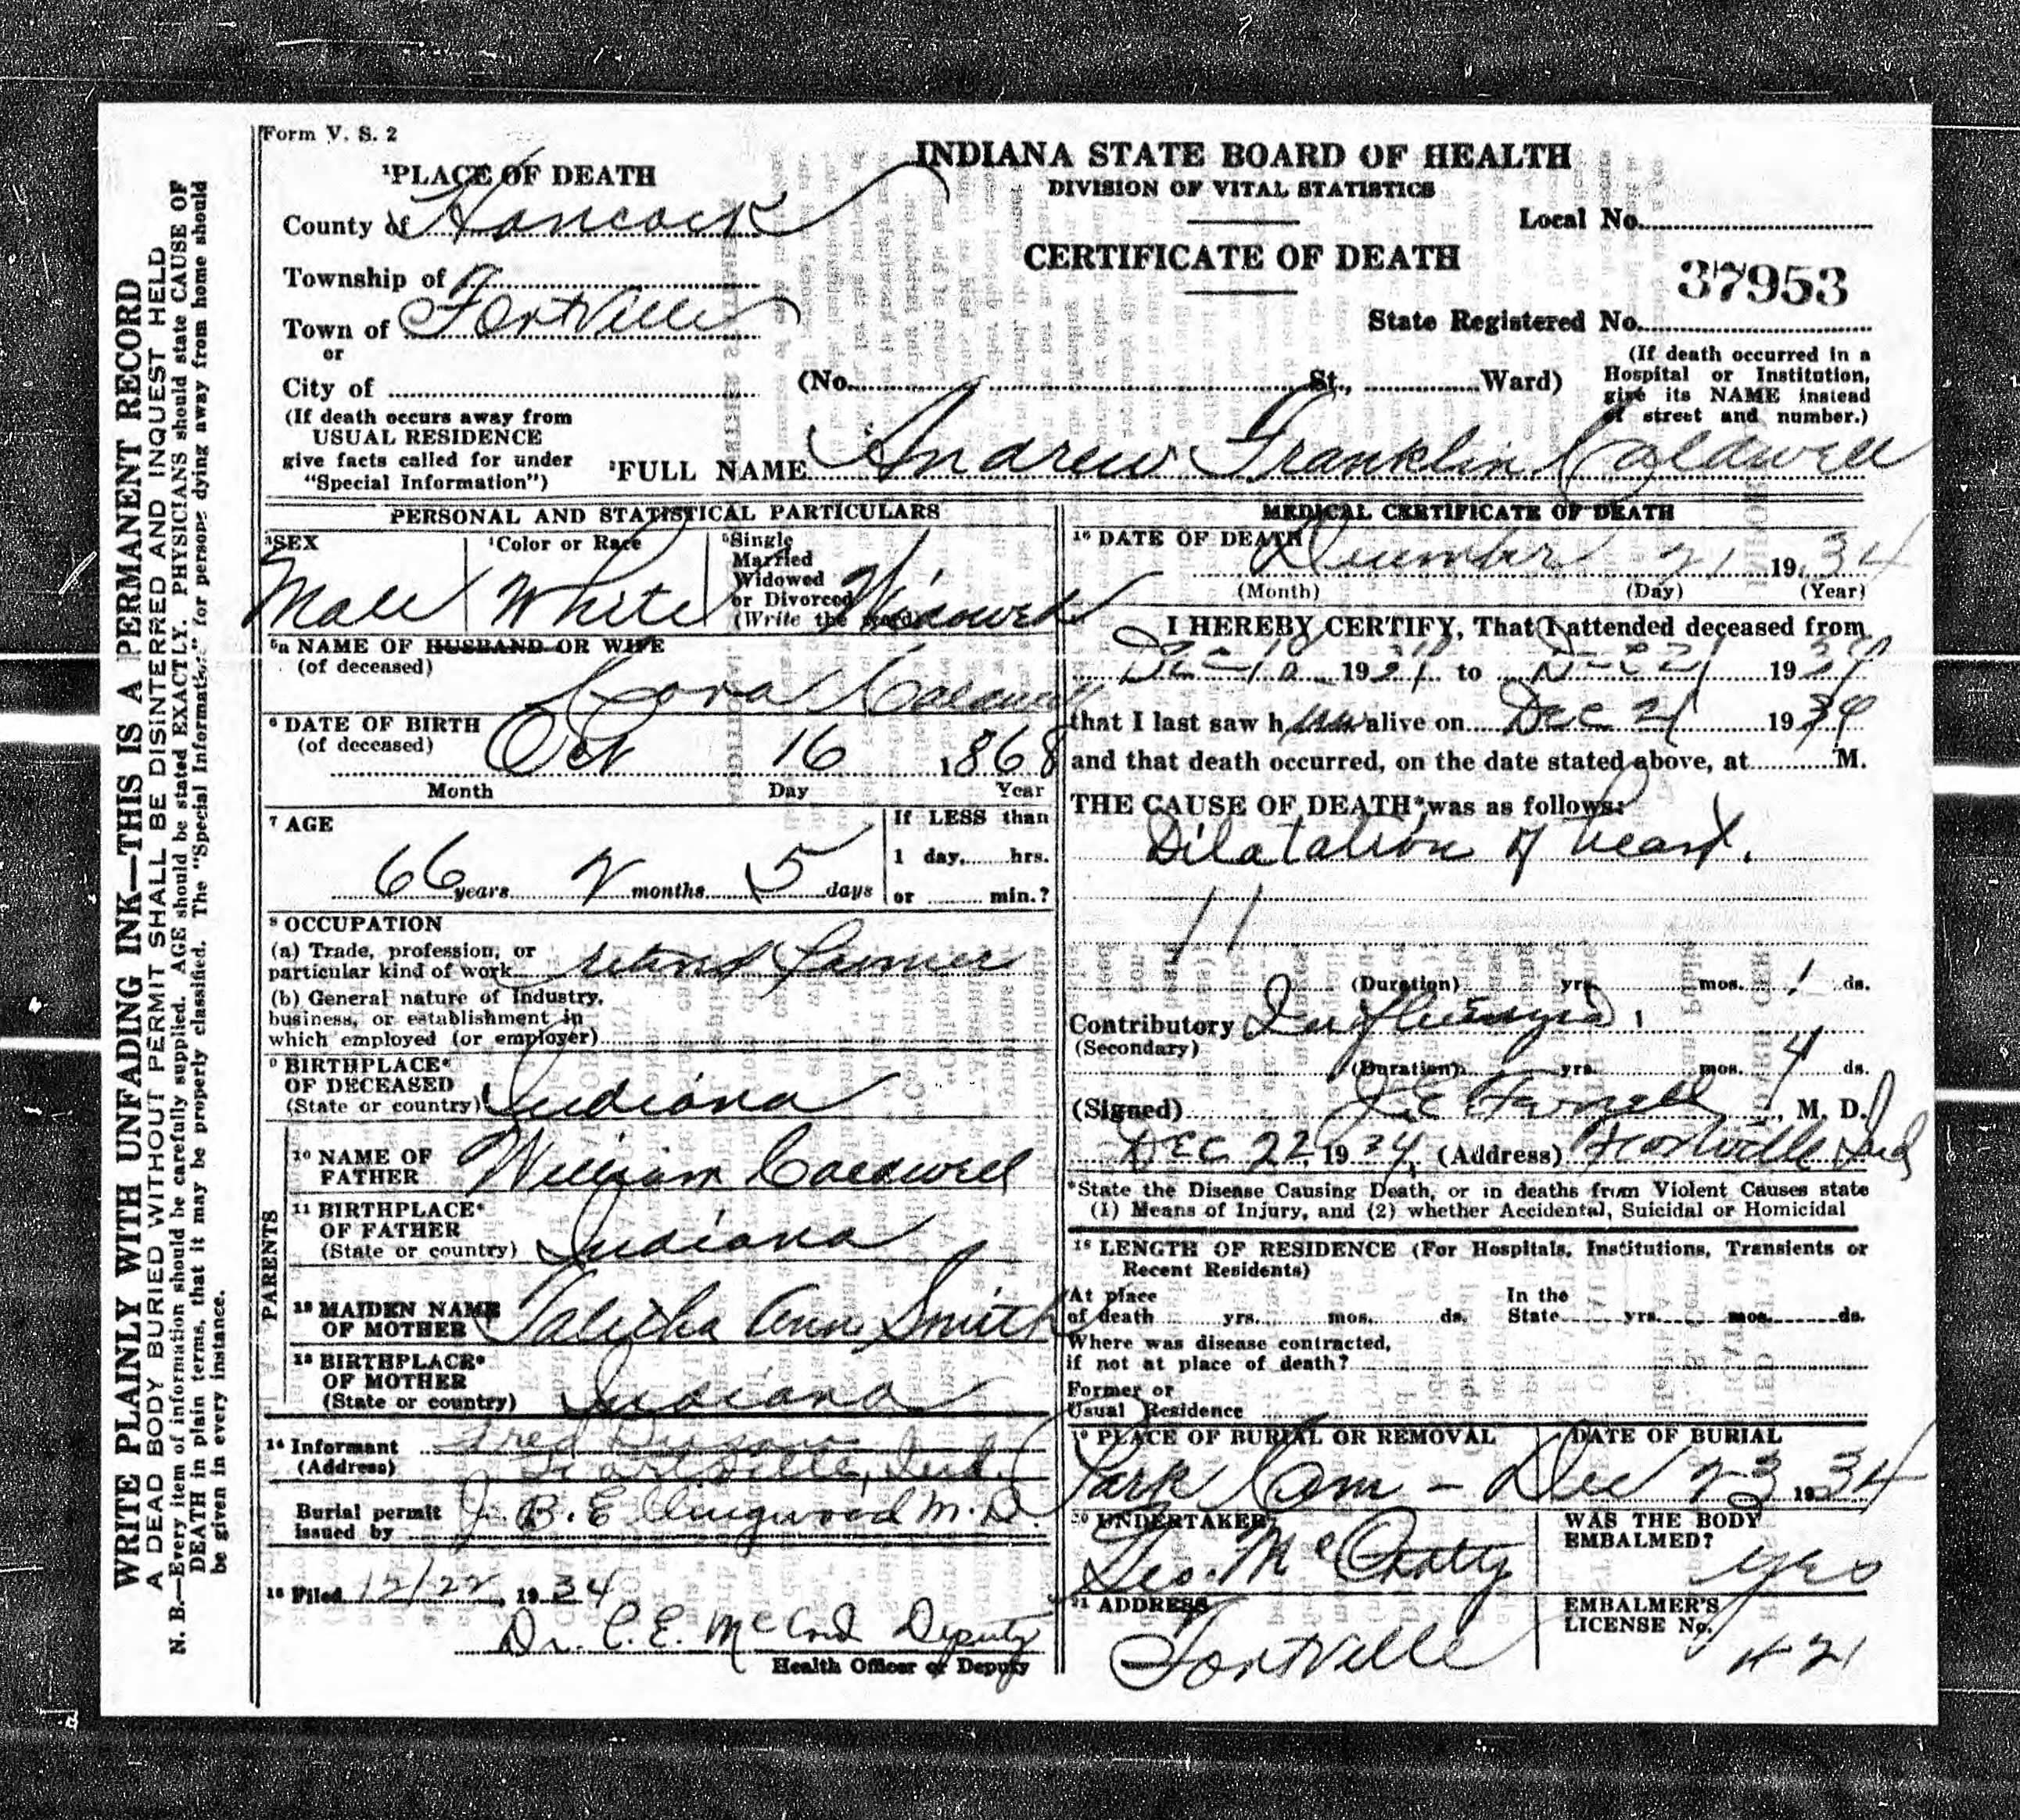 Form V. S. 2
INDIANA STATE BOARD OF HEALTH
DIVISION OF VITAL STATISTICS
CERTIFICATE OF DEATH
Local No.
37953
State Registered No.
(If death occurred in a
Hospital or Institution,
give its NAME instead
of street and number.)
¹PLACE OF DEATH
County of Hancock
Township of
Town of Fortville
or
City of
(No. St., Ward)
(If death occurs away from
USUAL RESIDENCE
give facts called for under
"Special Information")
²FULL NAME Andrew Franklin Caldwell
PERSONAL AND STATISTICAL PARTICULARS
³SEX
Male
⁴Color or Race
White
⁵Single
Married
Widowed
or Divorced
(Write the word)
Widowed
⁵ᵃ NAME OF HUSBAND OR WIFE
(of deceased)
Cora Caldwell
⁶ DATE OF BIRTH
(of deceased)
Oct 16 1868
Month Day Year
⁷ AGE
66 years 2 months 5 days
If LESS than
1 day, hrs.
or min.?
⁸ OCCUPATION
(a) Trade, profession, or
particular kind of work retired Farmer
(b) General nature of Industry,
business, or establishment in
which employed (or employer)
⁹ BIRTHPLACE*
OF DECEASED
(State or country) Indiana
PARENTS
¹⁰ NAME OF
FATHER William Caldwell
¹¹ BIRTHPLACE*
OF FATHER
(State or country) Indiana
¹² MAIDEN NAME
OF MOTHER Talitha Ann Smith
¹³ BIRTHPLACE*
OF MOTHER
(State or country) Indiana
¹⁴ Informant Fred
(Address) Fortville, Ind.
Burial permit
issued by J. B. Ellingwood M.D.
¹⁵ Filed 12/22, 1934
Dr. C. E. McCord Deputy
Health Officer or Deputy
MEDICAL CERTIFICATE OF DEATH
¹⁶ DATE OF DEATH
December 21 1934
(Month) (Day) (Year)
I HEREBY CERTIFY, That I attended deceased from
Dec 19 to Dec 21 1934
that I last saw h alive on Dec 21 1934
and that death occurred, on the date stated above, at M.
THE CAUSE OF DEATH* was as follows:
Dilatation of heart.
11
(Duration) yrs. mos. 1 ds.
Contributory Influenza.
(Secondary)
(Duration) yrs. mos. 4 ds.
(Signed) J.E. Ferrell, M. D.
Dec 22, 1934, (Address) Fortville Ind
*State the Disease Causing Death, or in deaths from Violent Causes state
(1) Means of Injury, and (2) whether Accidental, Suicidal or Homicidal
¹⁸ LENGTH OF RESIDENCE (For Hospitals, Institutions, Transients or
Recent Residents)
At place
of death yrs. mos. ds.
In the
State yrs. mos. ds.
Where was disease contracted,
if not at place of death?
Former or
Usual Residence
¹⁹ PLACE OF BURIAL OR REMOVAL
Park Cem -
DATE OF BURIAL
Dec 23 1934
²⁰ UNDERTAKER
Geo. McCarty
WAS THE BODY
EMBALMED?
yes
²¹ ADDRESS
Fortville
EMBALMER'S
LICENSE No.
421
WRITE PLAINLY WITH UNFADING INK—THIS IS A PERMANENT RECORD
A DEAD BODY BURIED WITHOUT PERMIT SHALL BE DISINTERRED AND INQUEST HELD
N. B.—Every item of information should be carefully supplied. AGE should be stated EXACTLY. PHYSICIANS should state CAUSE OF
DEATH in plain terms, that it may be properly classified. The "Special Information" for persons dying away from home should
be given in every instance.